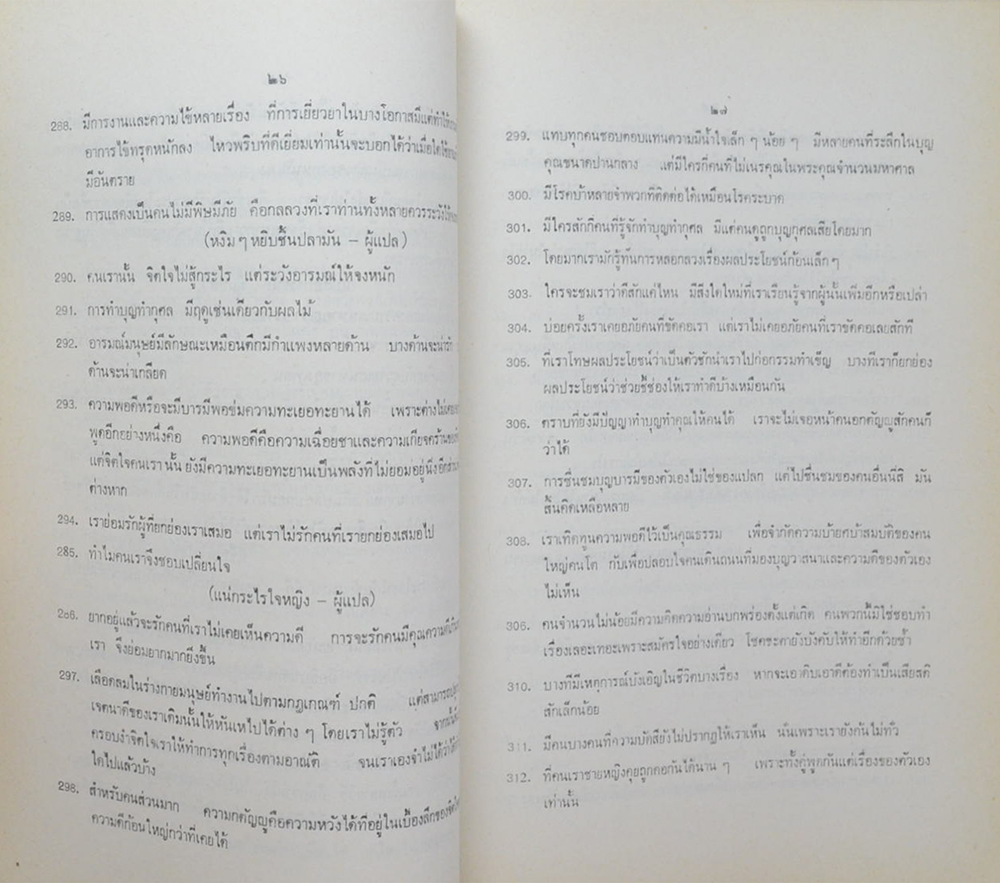 ๒๖
288. มีการงานและความไข้หลายเรื่อง ที่การเยียวยาในบางโอกาสมีแต่ทำให้
อาการไข้ทรุดหนักลง ไหวพริบที่ดีเยี่ยมเท่านั้นจะบอกได้ว่าเมื่อใดใช้
มีอันตราย
289. การแสดงเป็นคนไม่มีพิษมีภัย คือกลลวงที่เราท่านทั้งหลายควรระวังให้
(หงิม ๆ หยิบชิ้นปลามัน – ผู้แปล)
290. คนเรานั้น จิตใจไม่สู้กระไร แต่ระวังอารมณ์ให้จงหนัก
291. การทำบุญทำกุศล มีฤดูเช่นเดียวกับผลไม้
292. อารมณ์มนุษย์มีลักษณะเหมือนตึกมีกำแพงหลายด้าน บางด้านจะน่ารัก
ด้านจะน่าเกลียด
293. ความพอดีหรือจะมีบารมีพอข่มความทะเยอทะยานได้ เพราะต่างไม่เคย
พูดอีกอย่างหนึ่งคือ ความพอดีคือความเฉื่อยชาและความเกียจคร้านของ
แต่จิตใจคนเรานั้น ยังมีความทะเยอทะยานเป็นพลังที่ไม่ยอมอยู่นิ่งอีก
ต่างหาก
294. เราย่อมรักผู้ที่ยกย่องเราเสมอ แต่เราไม่รักคนที่เรายกย่องเสมอไป
285. ทำไมคนเราจึงชอบเปลี่ยนใจ
(แน่กระไรใจหญิง – ผู้แปล)
2c6. ยากอยู่แล้วจะรักคนที่เราไม่เคยเห็นความดี การจะรักคนมีคุณความดี
เรา จึงย่อมยากมากยิ่งขึ้น
297. เลือดลมในร่างกายมนุษย์ทำงานไปตามกฎเกณฑ์ ปกติ แต่สามารถ
เจตนาดีของเราเดิมนั้นให้หันเหไปได้ต่าง ๆ โดยเราไม่รู้ตัว จากนั้น
ครอบงำจิตใจเราให้ทำการทุกเรื่องตามอาณัติ จนเราเองจำไม่ได้ว่า
ใดไปแล้วบ้าง
298. สำหรับคนส่วนมาก ความกตัญญูคือความหวังได้ที่อยู่ในเบื้องลึกของ
ความดีก้อนใหญ่กว่าที่เคยได้
๒๗
299. แทบทุกคนชอบตอบแทนความมีน้ำใจเล็ก ๆ น้อย ๆ มีหลายคนที่ระลึกในบุญ
คุณขนาดปานกลาง แต่มีใครกี่คนที่ไม่เนรคุณในพระคุณจำนวนมหาศาล
300. มีโรคบ้าหลายจำพวกที่ติดต่อได้เหมือนโรคระบาด
301. มีใครสักกี่คนที่รู้จักทำบุญทำกุศล มีแต่คนดูถูกบุญกุศลเสียโดยมาก
302. โดยมากเรามักรู้ทันการหลอกลวงเรื่องผลประโยชน์ก้อนเล็ก ๆ
303. ใครจะชมเราว่าดีสักแค่ไหน มีสิ่งใดใหม่ที่เราเรียนรู้จากผู้นั้นเพิ่มอีกหรือเปล่า
304. บ่อยครั้งเราเคยอภัยคนที่ขัดคอเรา แต่เราไม่เคยอภัยคนที่เราขัดคอเลยสักที
305. ที่เราโทษผลประโยชน์ว่าเป็นตัวชักนำเราไปก่อกรรมทำเข็ญ บางทีเราก็ยกย่อง
ผลประโยชน์ว่าช่วยชี้ช่องให้เราทำดีบ้างเหมือนกัน
306. ตราบที่ยังมีปัญญาทำบุญทำคุณให้คนได้ เราจะไม่เจอหน้าคนอกตัญญูสักคนก็
ว่าได้
307. การชื่นชมบุญบารมีของตัวเองไม่ใช่ของแปลก แต่ไปชื่นชมของคนอื่นนี่สิ มัน
สิ้นคิดเหลือหลาย
308. เราเทิดทูนความพอดีไว้เป็นคุณธรรม เพื่อจำกัดความบ้ายศบ้าสมบัติของคน
ใหญ่คนโต กับเพื่อปลอบใจคนเดินถนนที่มองบุญวาสนาและความดีของตัวเอง
ไม่เห็น
306. คนจำนวนไม่น้อยมีความคิดความอ่านบกพร่องตั้งแต่เกิด คนพวกนี้มิใช่ชอบทำ
เรื่องเลอะเทอะเพราะสมัครใจอย่างเดียว โชคชะตายังบังคับให้ทำอีกด้วยซ้ำ
310. บางทีมีเหตุการณ์บังเอิญในชีวิตบางเรื่อง หากจะเอาดิบเอาดีต้องทำเป็นเสียสติ
สักเล็กน้อย
311. มีคนบางคนที่ความบัดสียังไม่ปรากฏให้เราเห็น นั่นเพราะเรายังค้นไม่ทั่ว
312. ที่คนเราชายหญิงคุยถูกคอกันได้นาน ๆ เพราะทั้งคู่พูดกันแต่เรื่องของตัวเอง
เท่านั้น